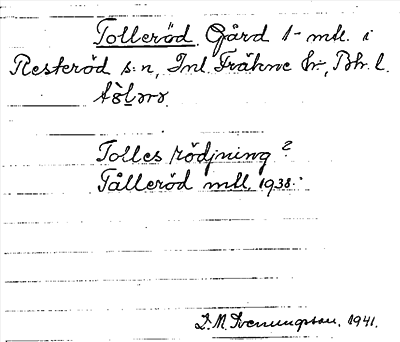 Tolleröd. Gård 1 mtl. i
Resteröd s:n, Inl. Fräkne hr, Boh. l.
Tolles rödjning?
Tålleröd mtl. 1938.
D. M. Svenungsson. 1941.